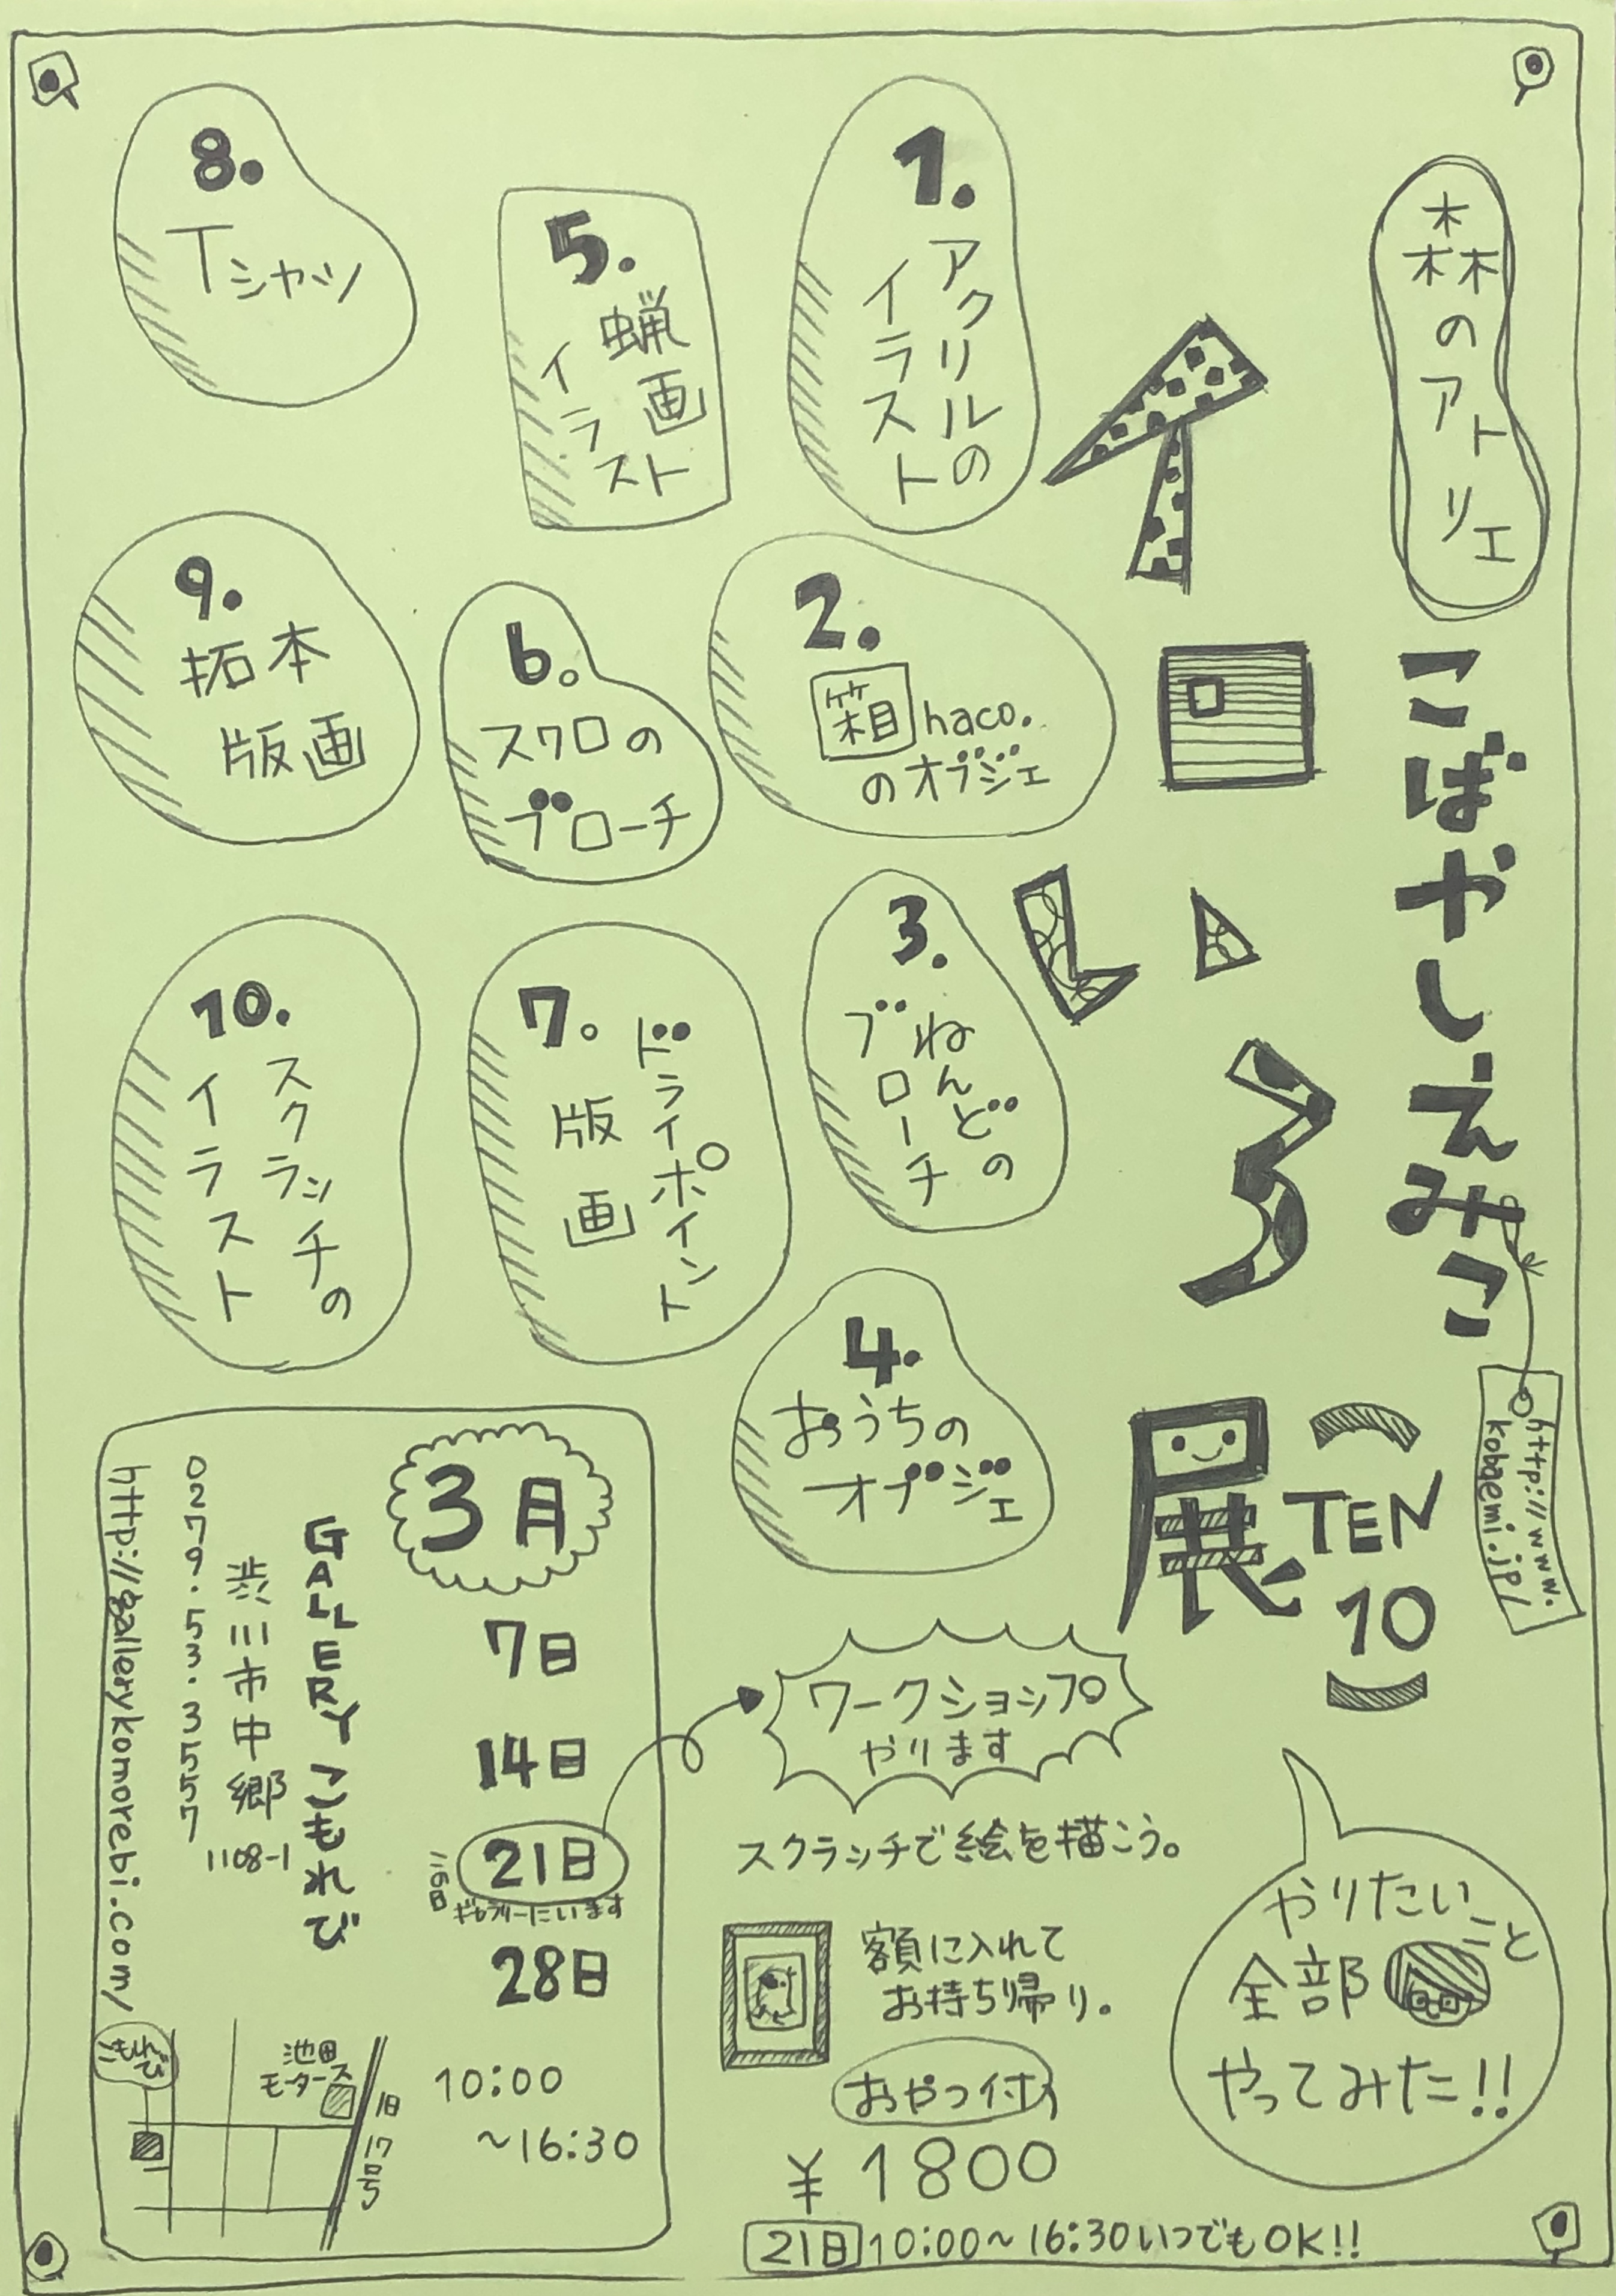 森のアトリエ
こばやしえみこ
http://www.
kobaemi.jp/
イロいろ展
(TEN
10)
やりたいこと
全部
やってみた!!
1.
アクリルの
イラスト
2.
箱haco.
のオブジェ
3.
ねんどの
ブローチ
4.
おうちの
オブジェ
5.
蝋画
イラスト
6.
スワロの
ブローチ
7.
ドライポイント
版画
8.
Tシャツ
9.
拓本
版画
10.
スクラッチの
イラスト
ワークショップ
やります
スクラッチで絵を描こう。
額に入れて
お持ち帰り。
おやつ付
¥1800
21日10:00～16:30いつでもOK!!
3月
7日
14日
21日
この日
ギャラリーにいます
28日
10:00
～16:30
GALLERY こもれび
渋川市中郷1108-1
0279.53.3557
http://gallerykomorebi.com/
こもれび
池田
モータース
旧17号